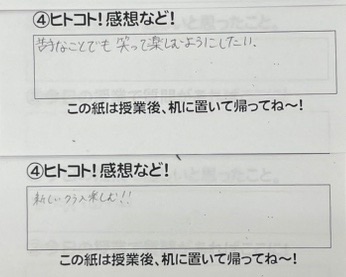 ④ヒトコト!感想など!
苦手なことでも笑って楽しむようにしたい.
この紙は授業後、机に置いて帰ってね〜!
④ヒトコト!感想など!
新しいクラス楽しむ!!
この紙は授業後、机に置いて帰ってね〜!